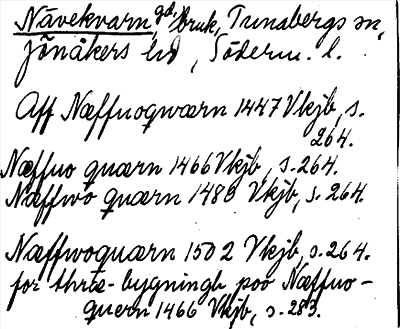 Nävekvarn, gd, bruk, Tunabergs sn,
Jönåkers hd, Söderm. l.
Aff Næffuoqwærn 1447 Vkjb, s.
264.
Næffuo quærn 1466 Vkjb, s. 264.
Næffwo quærn 1480 Vkjb, s. 264
Næffwoquærn 1502 Vkjb, s. 264.
for thræ- bygningh poo Næffuo-
quern 1466 Vkjb, s. 283.